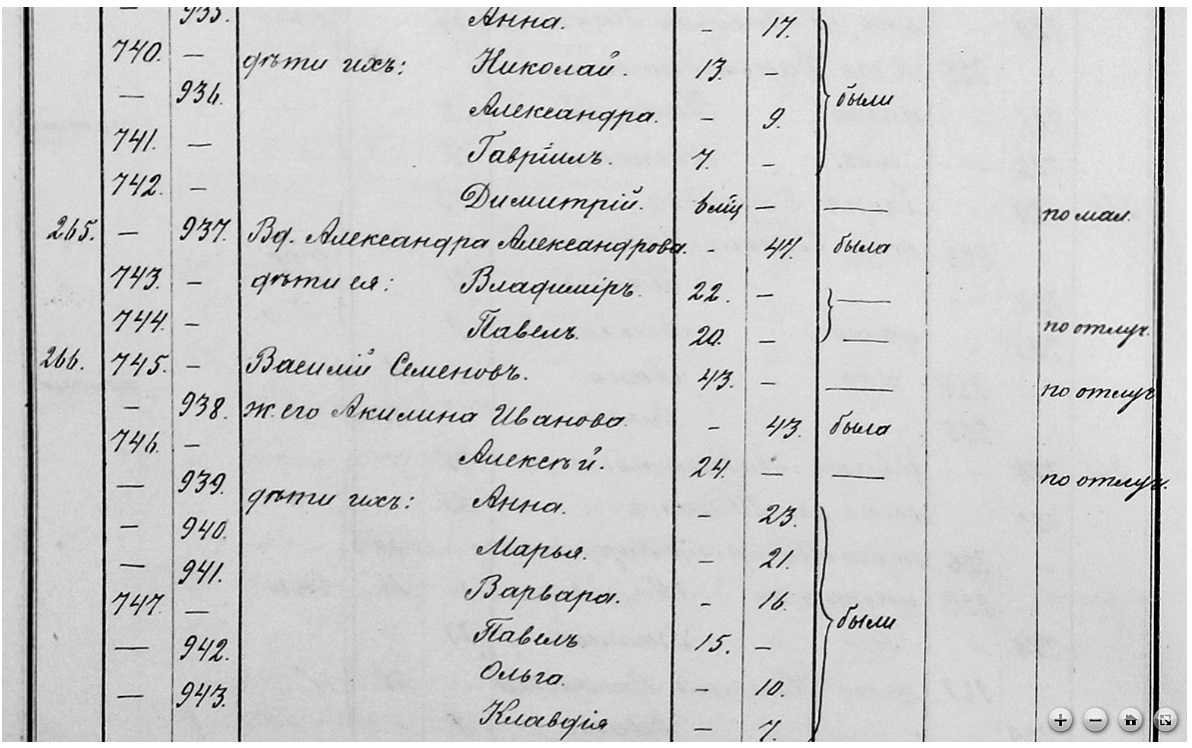 — 935. Анна. — 17.
740. — дѣти ихъ: Николай. 13. —
— 936. Александра. — 9. были
741. — Гавріилъ. 7. —
742. — Димитрій. 6 мц — — по мал.
265. — 937. Вд. Александра Александрова. - 47. была
743. — дѣти ея: Владиміръ. 22. — —
744. — Павелъ. 20. — — по отлуч.
266. 745. — Василій Семеновъ. 43. — — по отлуч
— 938. ж. его Акилина Иванова. - 43. была
746. — Алексѣй. 24. — — по отлуч.
— 939. дѣти ихъ: Анна. — 23.
— 940. Марья. - 21.
— 941. Варвара. - 16.
747. — Павелъ 15. — были
— 942. Ольга. - 10.
— 943. Клавдія — 7.